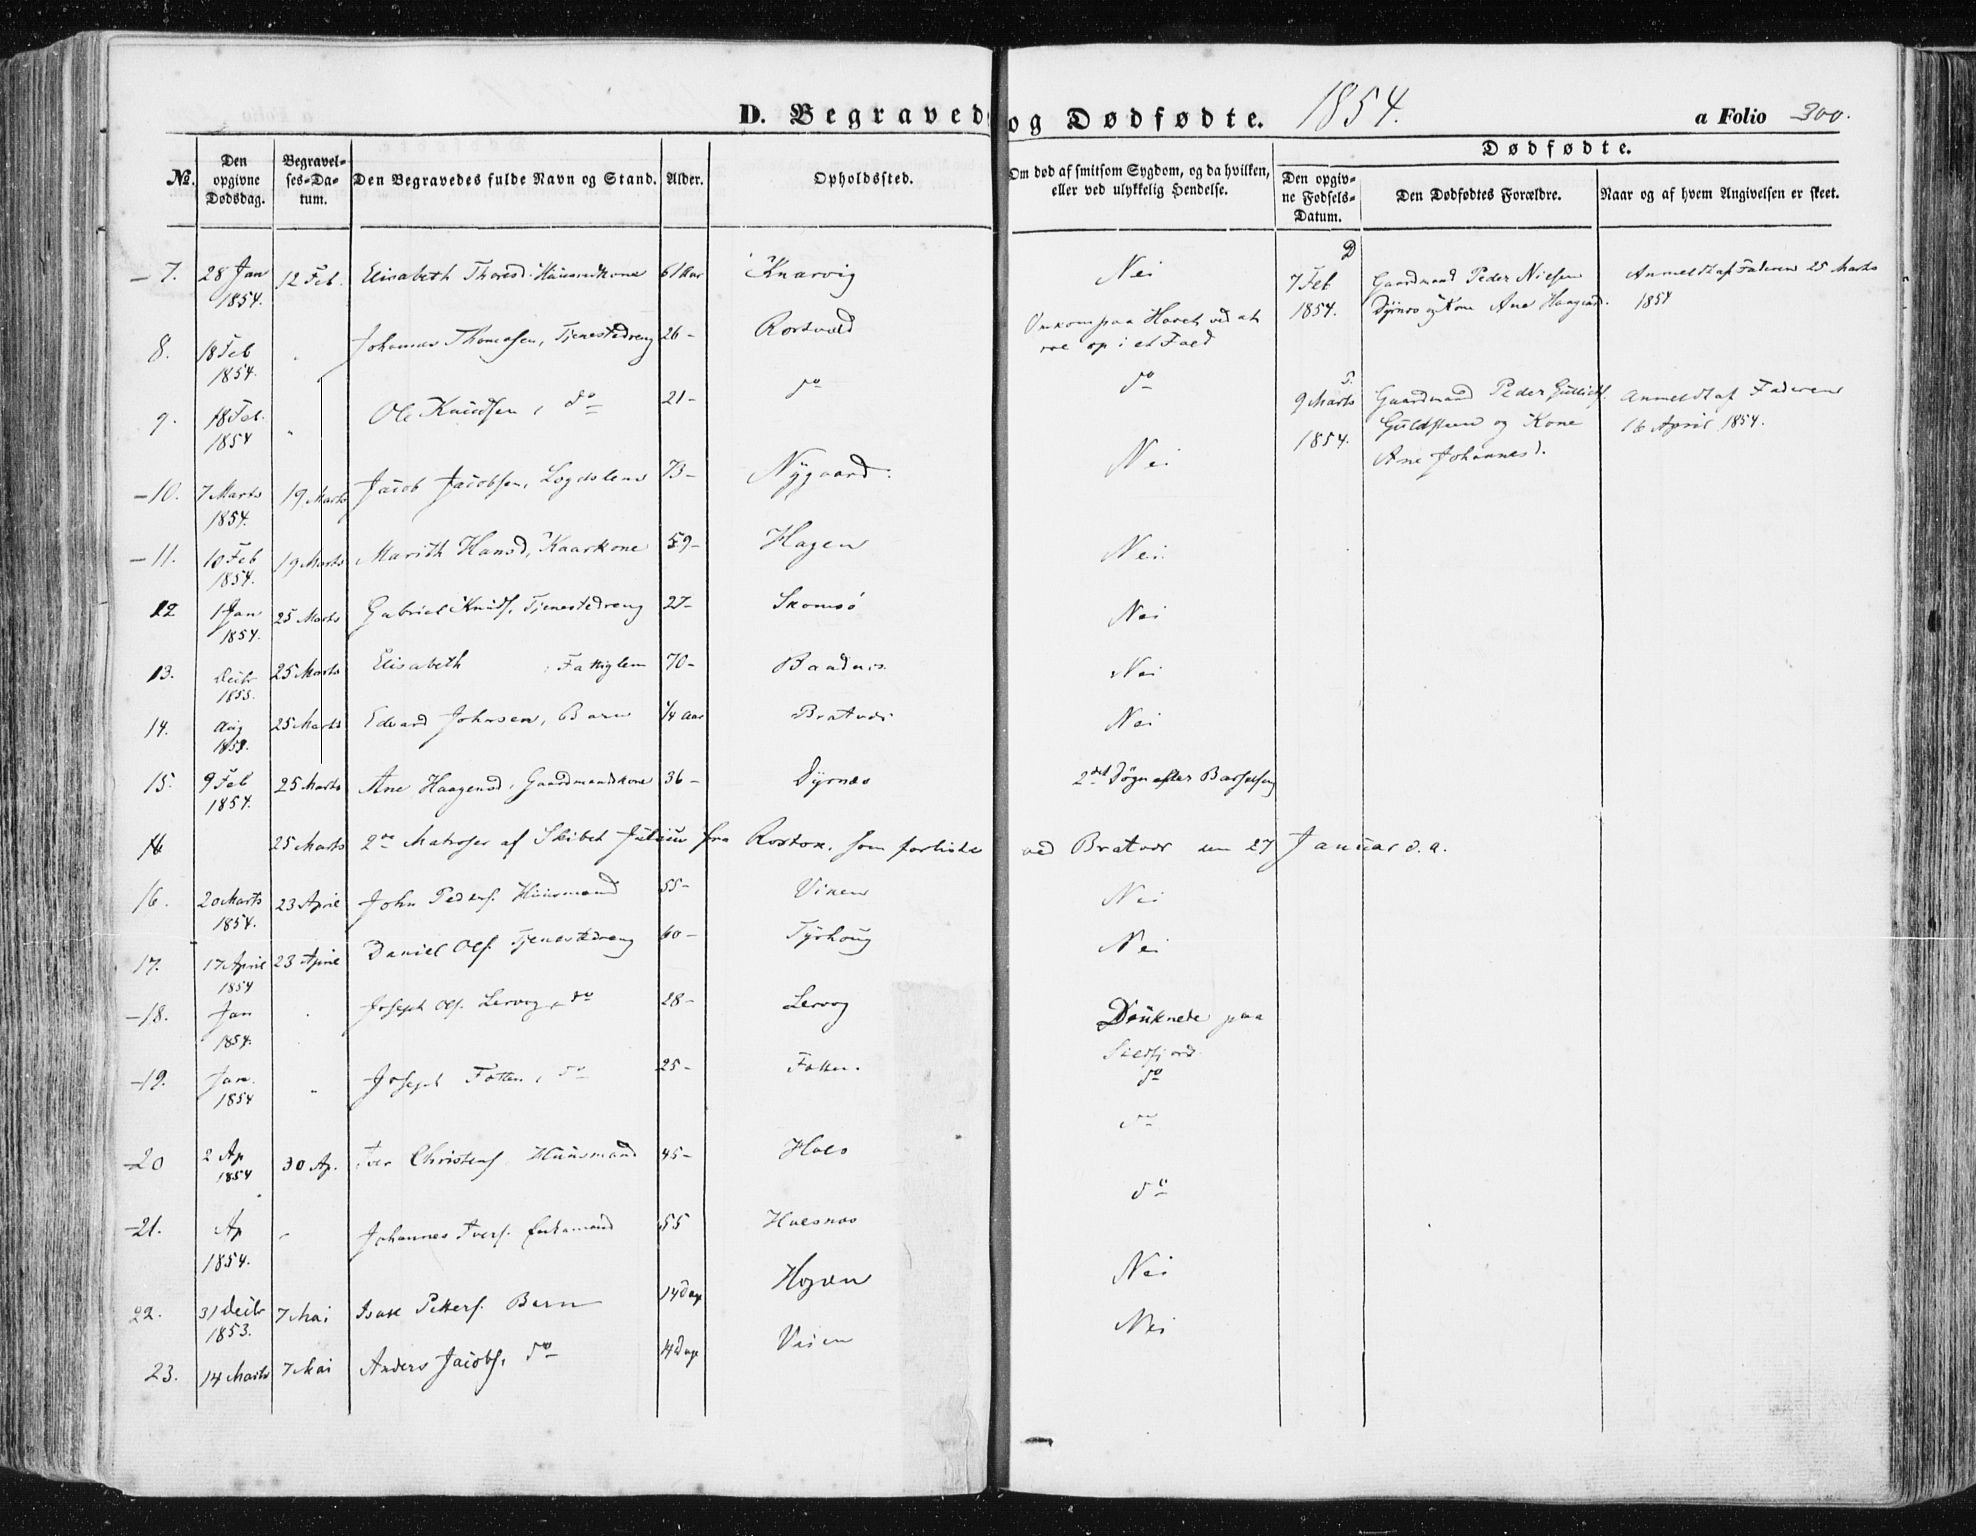 D. Begravede og Dødfødte. 1854. a Folio 300.
Dødfødte.
No. Den opgivne Dødsdag. Begravelses-Datum. Den Begravedes fulde Navn og Stand. Alder. Opholdssted. Om død af smitsom Sygdom, og da hvilken, eller ved ulykkelig Hendelse. Den opgivne Fødsels-Datum. Den Dødfødtes Forældre. Naar og af hvem Angivelsen er skeet.
7. 28 Jan 1854. 12 Feb. Elisabeth Thoresd. Huusmdkone 61 Aar Knarvig Nei
D 7 Feb 1854. Gaardmand Peder Nielsen Dyrnes og Kone Ane Haagensd. Anmeldt af Faderen 25 Marts 1854
8. 18 Feb 1854. Johannes Thomasen, Tjenestedreng 26 - Rostvold Omkom paa Havet ved at roe op i et Fald
9. 18 Feb. 1854 Ole Knudsen, do 21 - do do
9 Marts 1854. Gaardmand Peder Gulliksf. Guldsteen og Kone Ane Johannesd. Anmeldt af Faderen 16 April 1854.
10. 7 Marts 1854. 19 Marts Jacob Jacobsen, Logdslem 73 - Nygaard. Nei
11. 10 Feb 1854. 19 Marts Marith Hansd, Kaarkone 59 - Hagen Nei.
12 1 Jan 1854. 25 Marts Gabriel Knuds. Tjenestedreng 27 - Skomsö Nei
13. Decbr 1853. 25 Marts Elisabeth Fattiglem 70 - Baadnes Nei
14. Aug 1853. 25 Marts Edvard Johnsen, Barn 1/4 Aar Bratvær Nei
15. 9 Feb 1854. 25 Marts Ane Haagensd, Gaardmandskone 36 - Dyrnæs 2det Døgn efter Barselseng
16 25 Marts 2de Matroser af Skibet Julius fra Rostok, som forliste ved Bratvær den 27 Januar d. a.
16. 20 Marts 1854. 23 April John Peders. Huusmand 55 - Viken Nei
17. 17 April 1854 23 April Daniel Ols. Tjenestedreng 60 - Tyrhoug Nei
18. Jan 1854. Joseph Ols. Lervog, do 28 - Lervog Druknede paa Sildfjord
19. Jan. 1854 Joseph Fotten, do 25 - Foten do
20 2 Ap 1854 30 Ap. Iver Christens. Huusmand 45 - Hals do
21. Ap 1854. Johannes Ivers. Enkemand 55 Halsnæs do
22. 31 Decbr 1853. 7 Mai Isak Petters. Barn 14 Dage Hopen Nei
23. 14 Marts 7 Mai Anders Jacobs, do 4 Dage Veien Nei